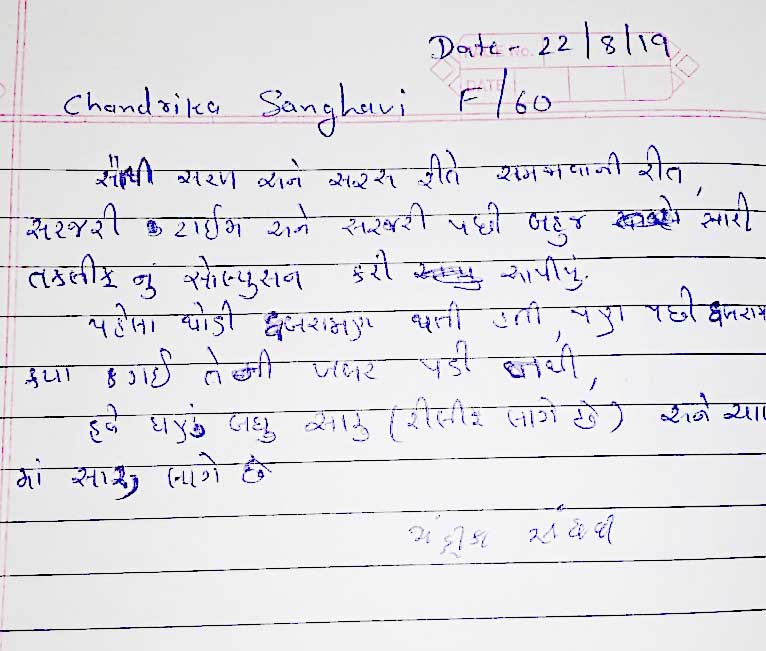 Date - 22/8/19
Chandrika Sanghavi F/60
સૌથી સરળ અને સરસ રીતે સમજાવાની રીત,
સરજરી ટાઈમ અને સરજરી પછી બહુજ સારી
તકલીફ નું સોલ્યુસન કરી આપીયું.
પહેલા થોડી ગભરામણ થતી હતી, પણ પછી ગભરામ
કયા ગઈ તેની ખબર પડી નથી,
હવે ઘણું બધુ સારુ (રીલીફ લાગે છે) અને ચા
માં સારૂ લાગે છે
ચંદ્રીકા સંઘવી